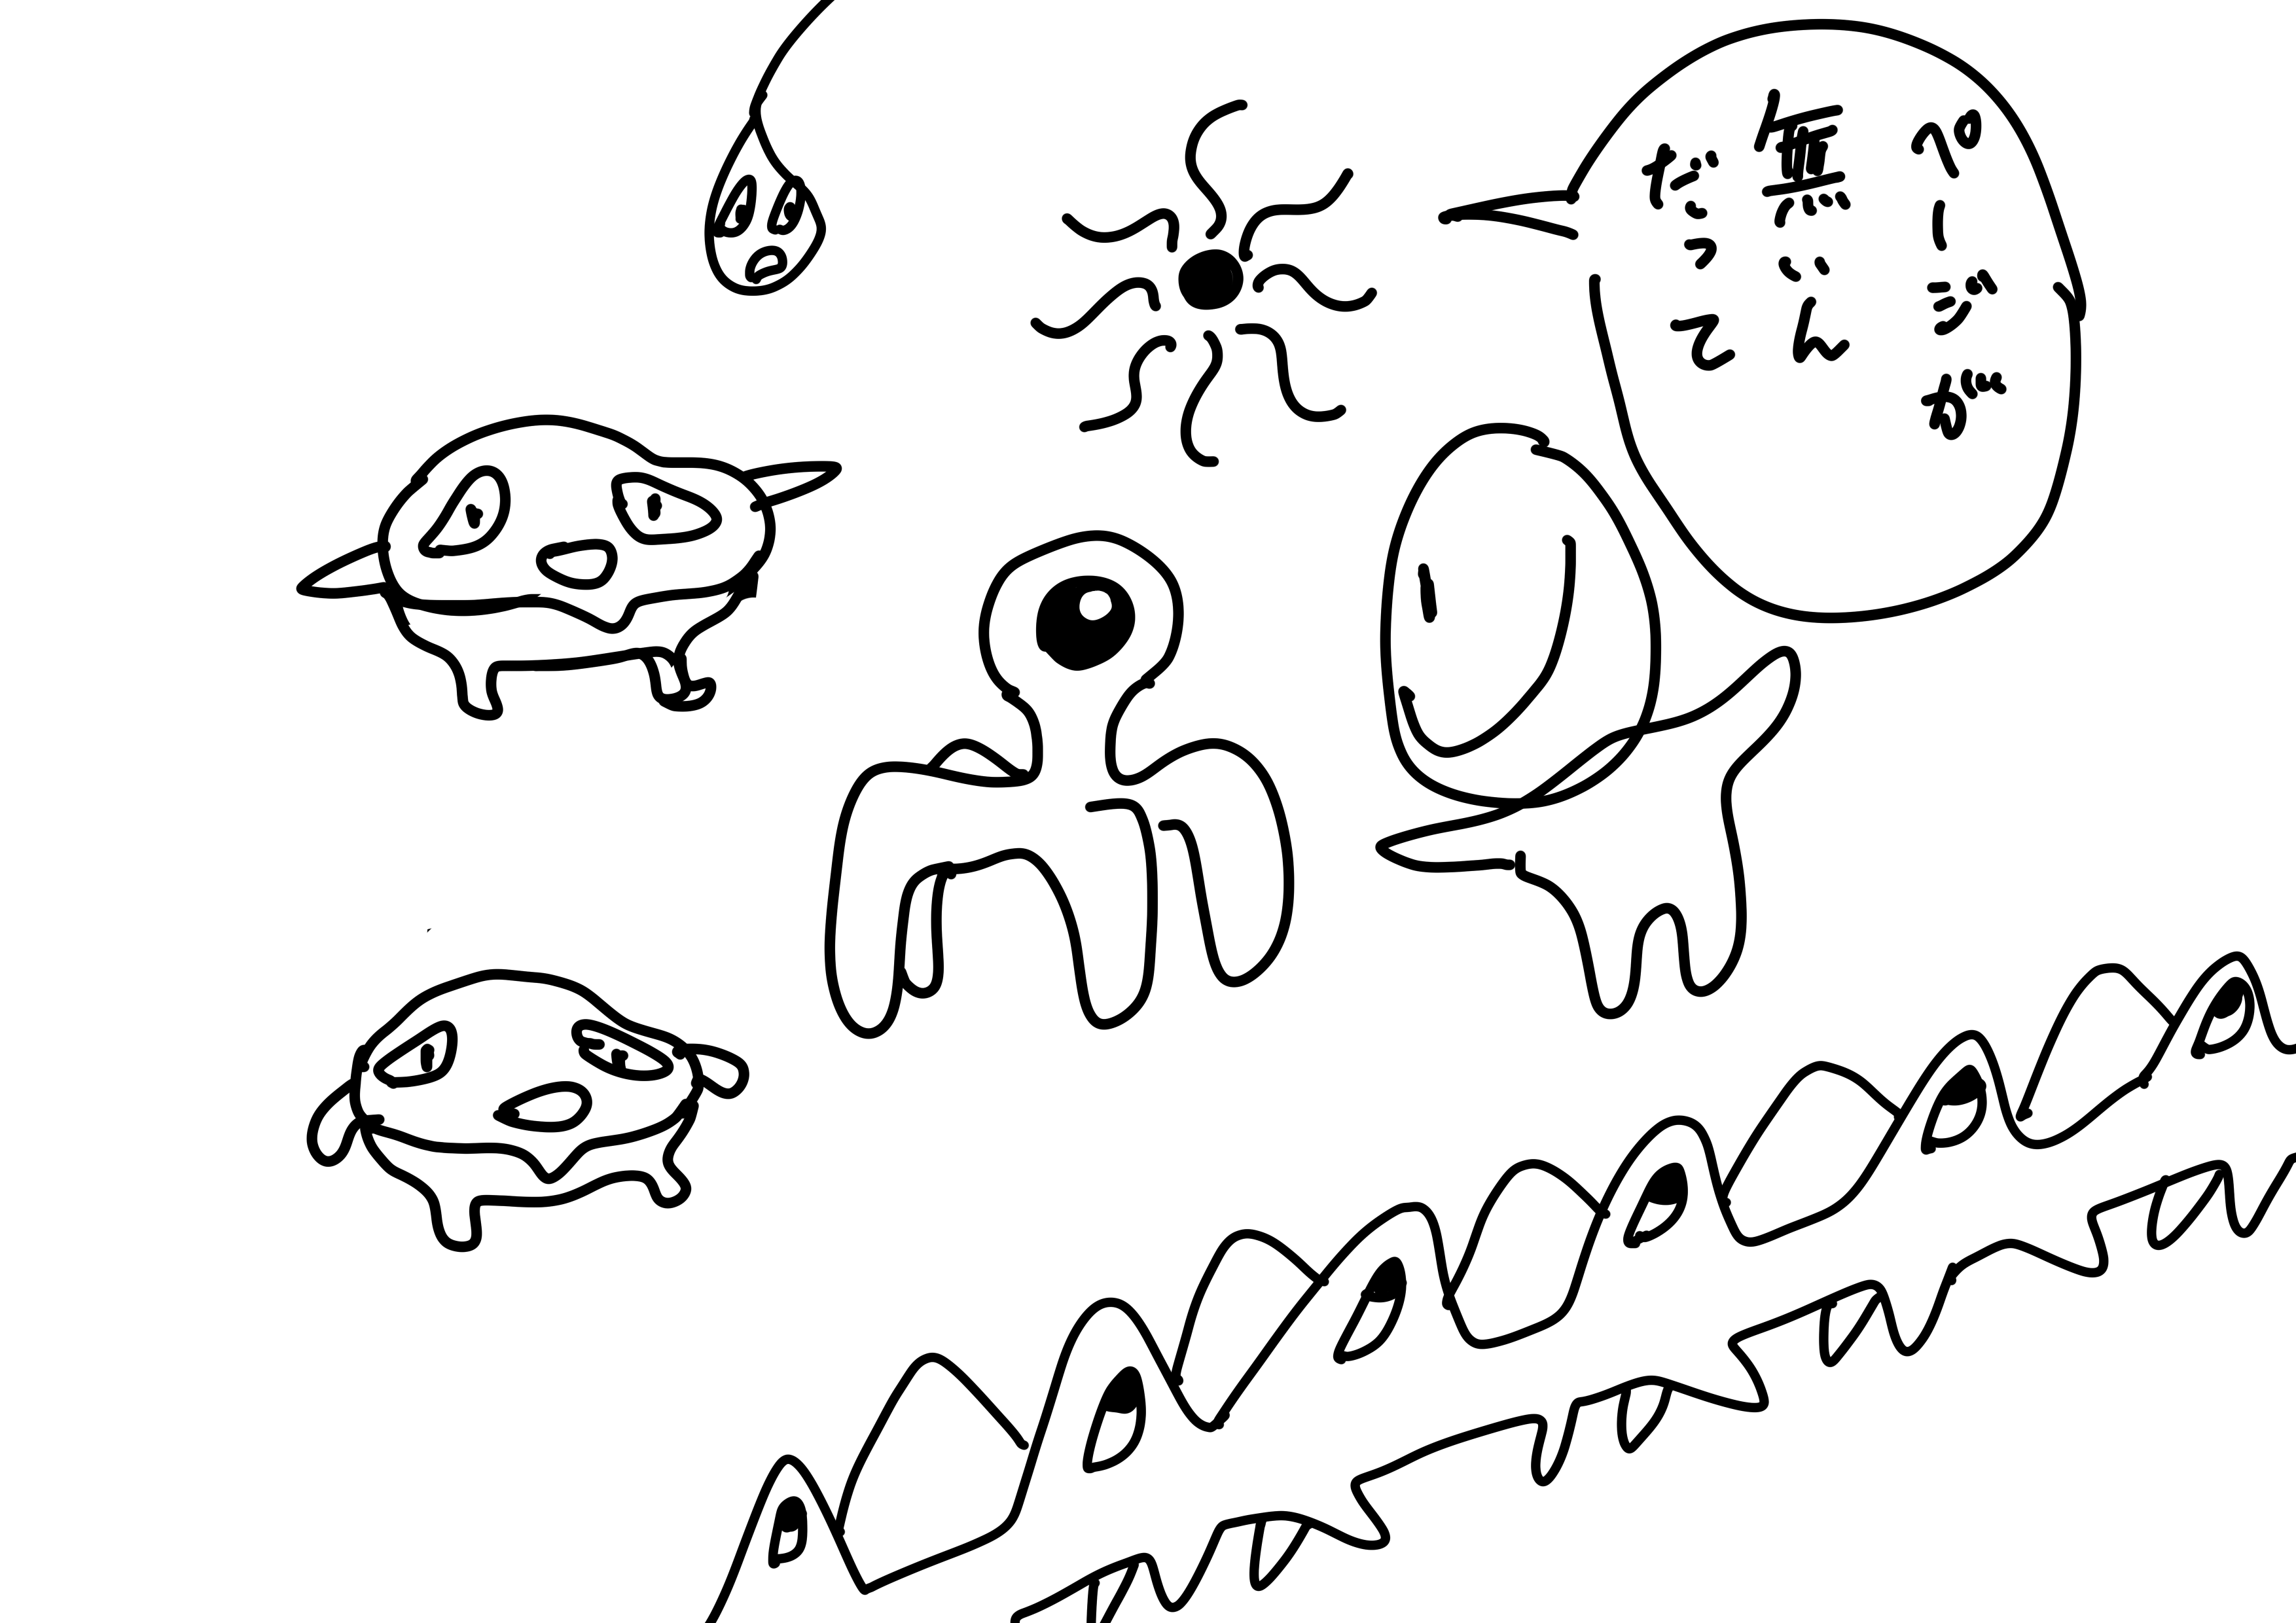 ページが
無いん
だって